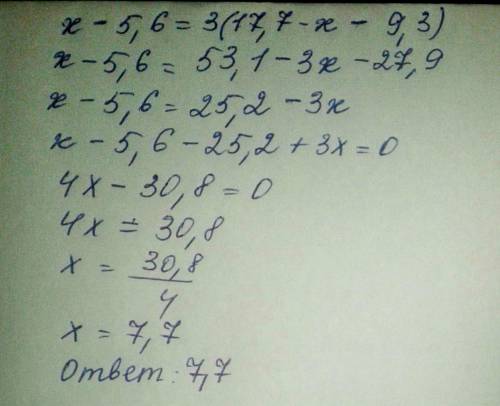 x - 5,6 = 3(17,7 - x - 9,3)
x - 5,6 = 53,1 - 3x - 27,9
x - 5,6 = 25,2 - 3x
x - 5,6 - 25,2 + 3x = 0
4x - 30,8 = 0
4x = 30,8
x = 30,8/4
x = 7,7
Ответ: 7,7